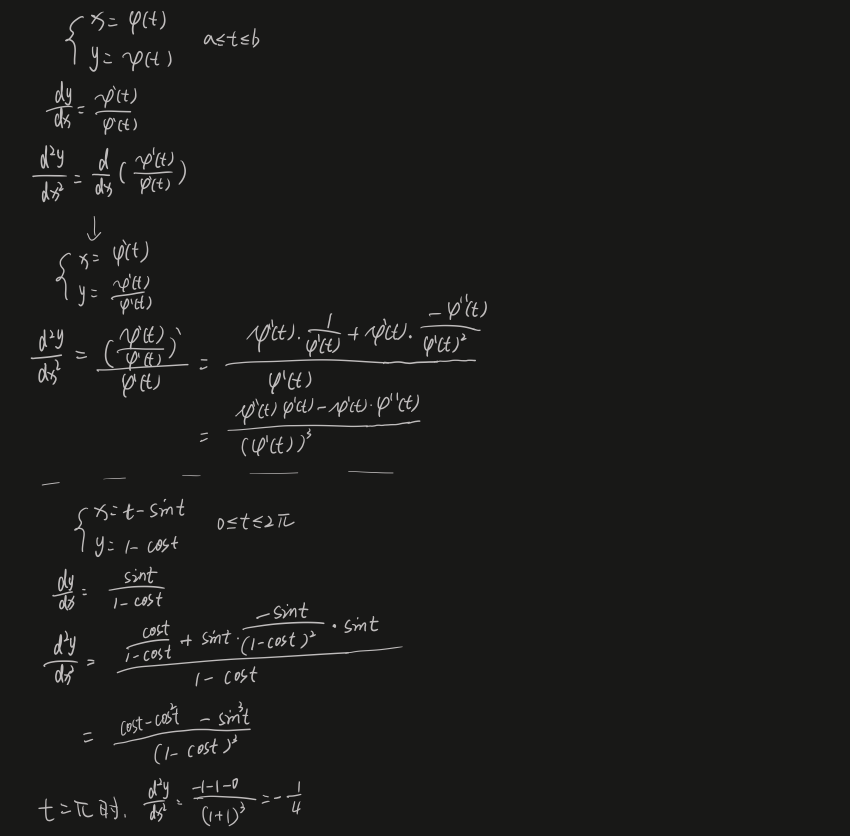 { x = φ(t)
{ y = ψ(t) a≤t≤b
dy/dx = ψ'(t)/φ'(t)
d²y/dx² = d/dx (ψ'(t)/φ'(t))
↓
{ x = φ(t)
{ y = ψ'(t)/φ'(t)
d²y/dx² = (ψ'(t)/φ'(t))'/φ'(t) = (ψ''(t)·1/φ'(t) + ψ'(t)·(-φ''(t))/φ'(t)²)/φ'(t)
= (ψ''(t)φ'(t) - ψ'(t)·φ''(t))/(φ'(t))³
{ x = t - sint
{ y = 1 - cost 0≤t≤2π
dy/dx = sint/(1 - cost)
d²y/dx² = (cost/(1-cost) + sint·(-sint)/(1-cost)²·sint)/(1 - cost)
= (cost - cos²t - sin³t)/(1 - cost)³
t=π时, d²y/dx² = (-1-1-0)/(1+1)³ = -1/4